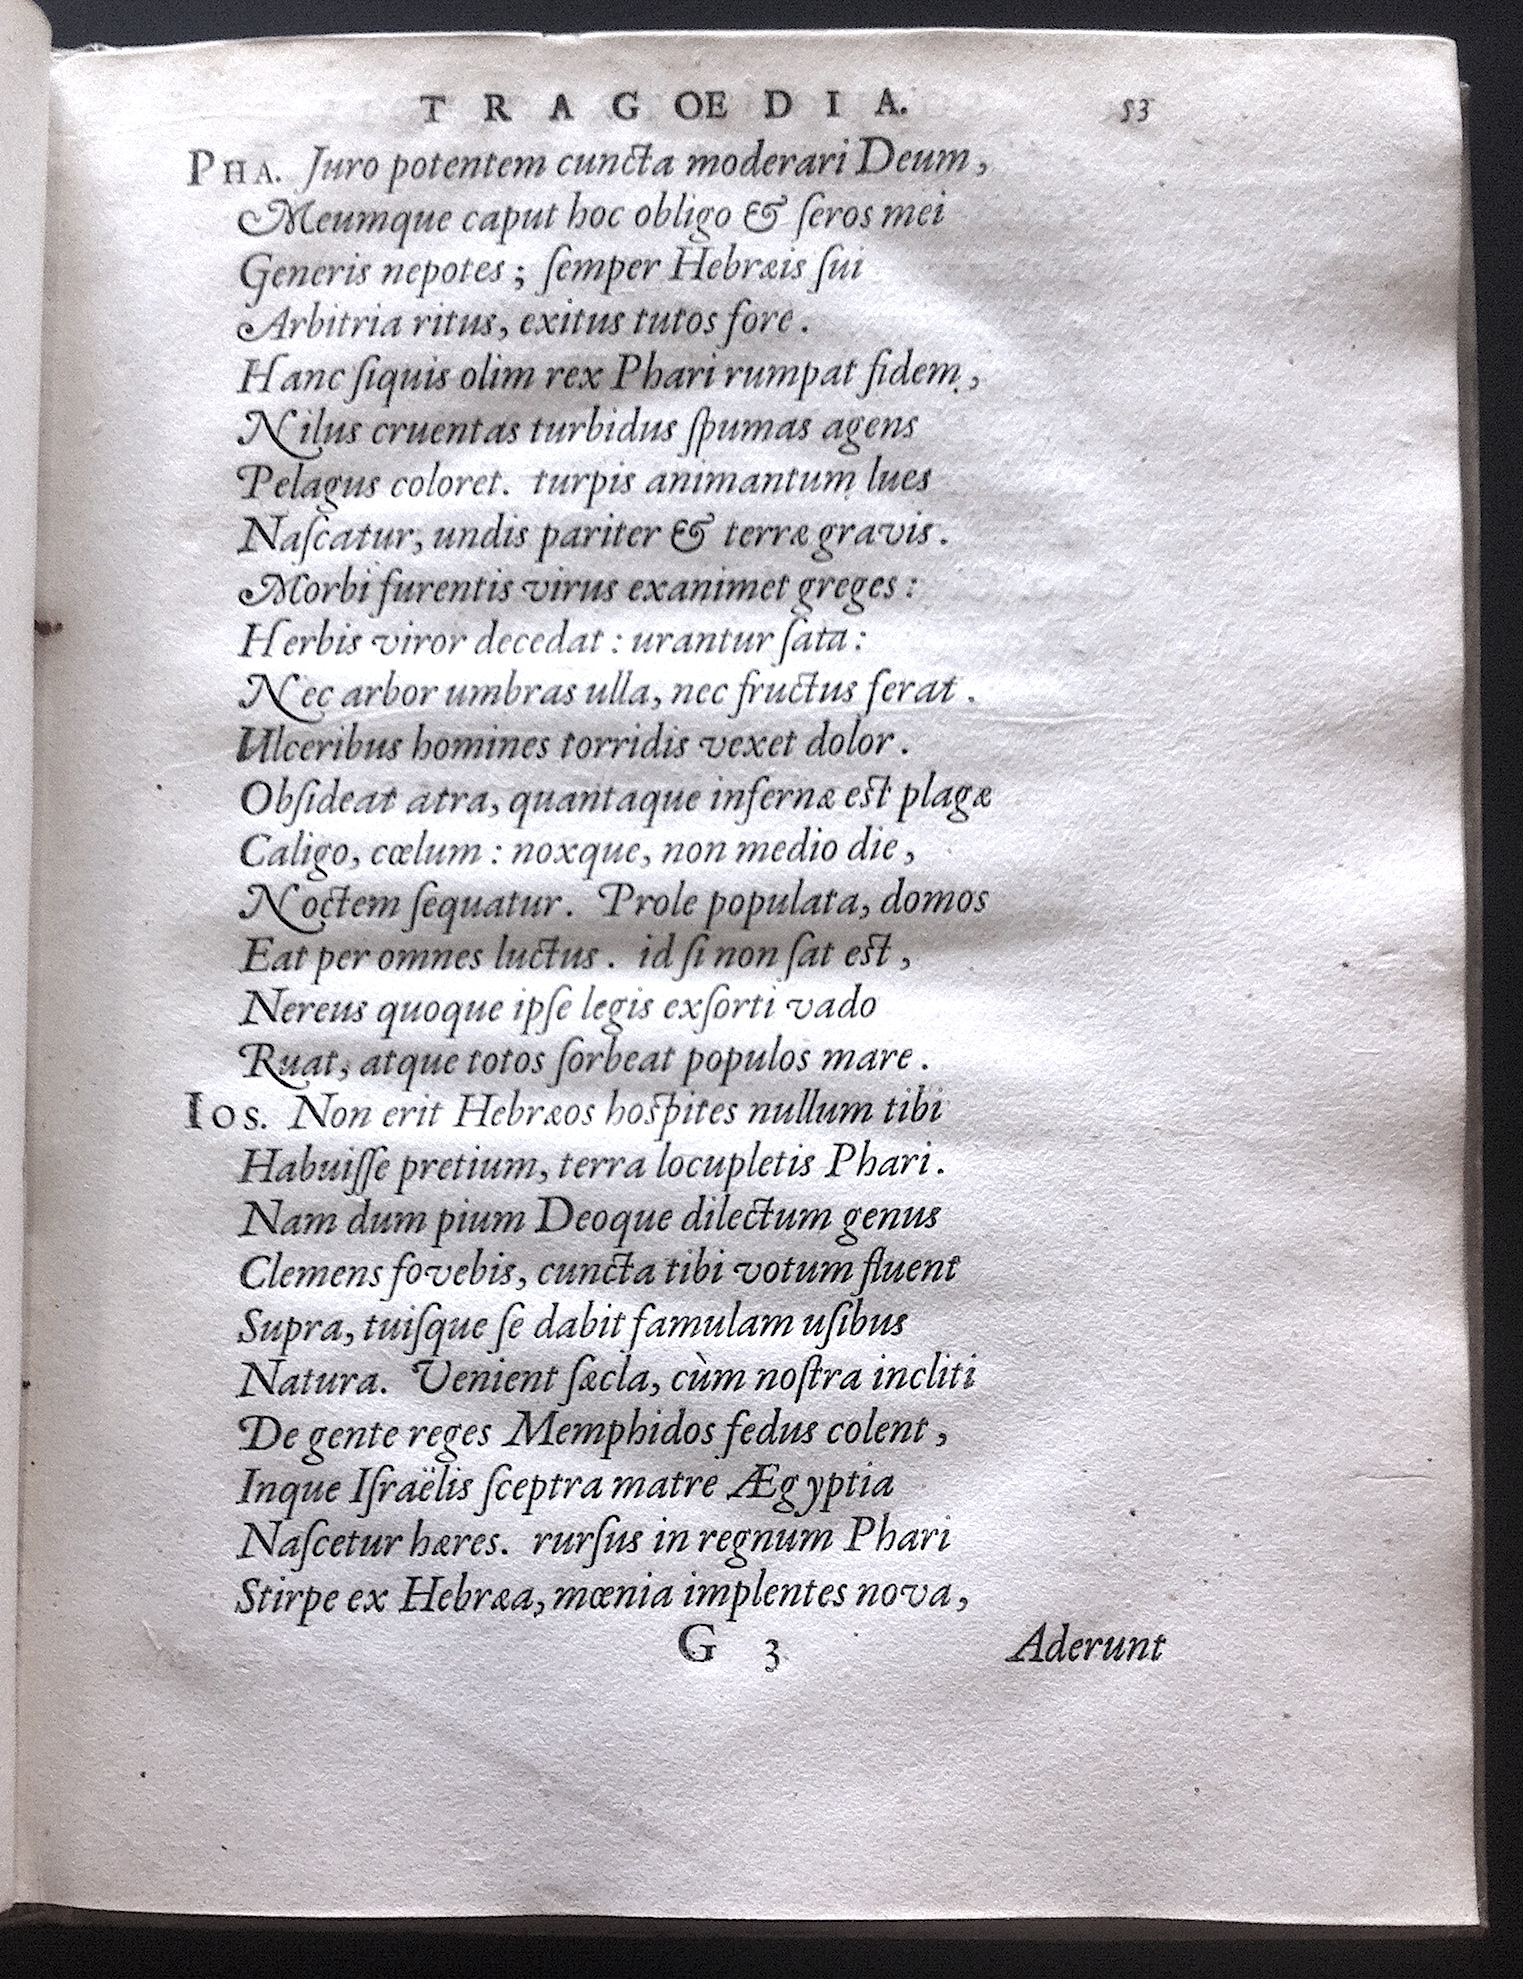 TRAGOEDIA. 53
PHA. Juro potentem cuncta moderari Deum,
Meumque caput hoc obligo & ſeros mei
Generis nepotes; ſemper Hebræis ſui
Arbitria ritus, exitus tutos fore.
Hanc ſiquis olim rex Phari rumpat fidem,
Nilus cruentas turbidus ſpumas agens
Pelagus coloret. turpis animantum lues
Naſcatur, undis pariter & terræ gravis.
Morbi furentis virus exanimet greges:
Herbis viror decedat: urantur ſata:
Nec arbor umbras ulla, nec fructus ferat.
Ulceribus homines torridis vexet dolor.
Obſideat atra, quantaque infernæ est plagæ
Caligo, cœlum: noxque, non medio die,
Noctem ſequatur. Prole populata, domos
Eat per omnes luctus. id ſi non ſat est,
Nereus quoque ipſe legis exſorti vado
Ruat, atque totos ſorbeat populos mare.
IOS. Non erit Hebræos hospites nullum tibi
Habuiſſe pretium, terra locupletis Phari.
Nam dum pium Deoque dilectum genus
Clemens fovebis, cuncta tibi votum fluent
Supra, tuiſque ſe dabit famulam uſibus
Natura. Venient ſæcla, cùm noſtra incliti
De gente reges Memphidos fedus colent,
Inque Iſraëlis ſceptra matre Ægyptia
Naſcetur hæres. rurſus in regnum Phari
Stirpe ex Hebræa, mœnia implentes nova,
G 3 Aderunt